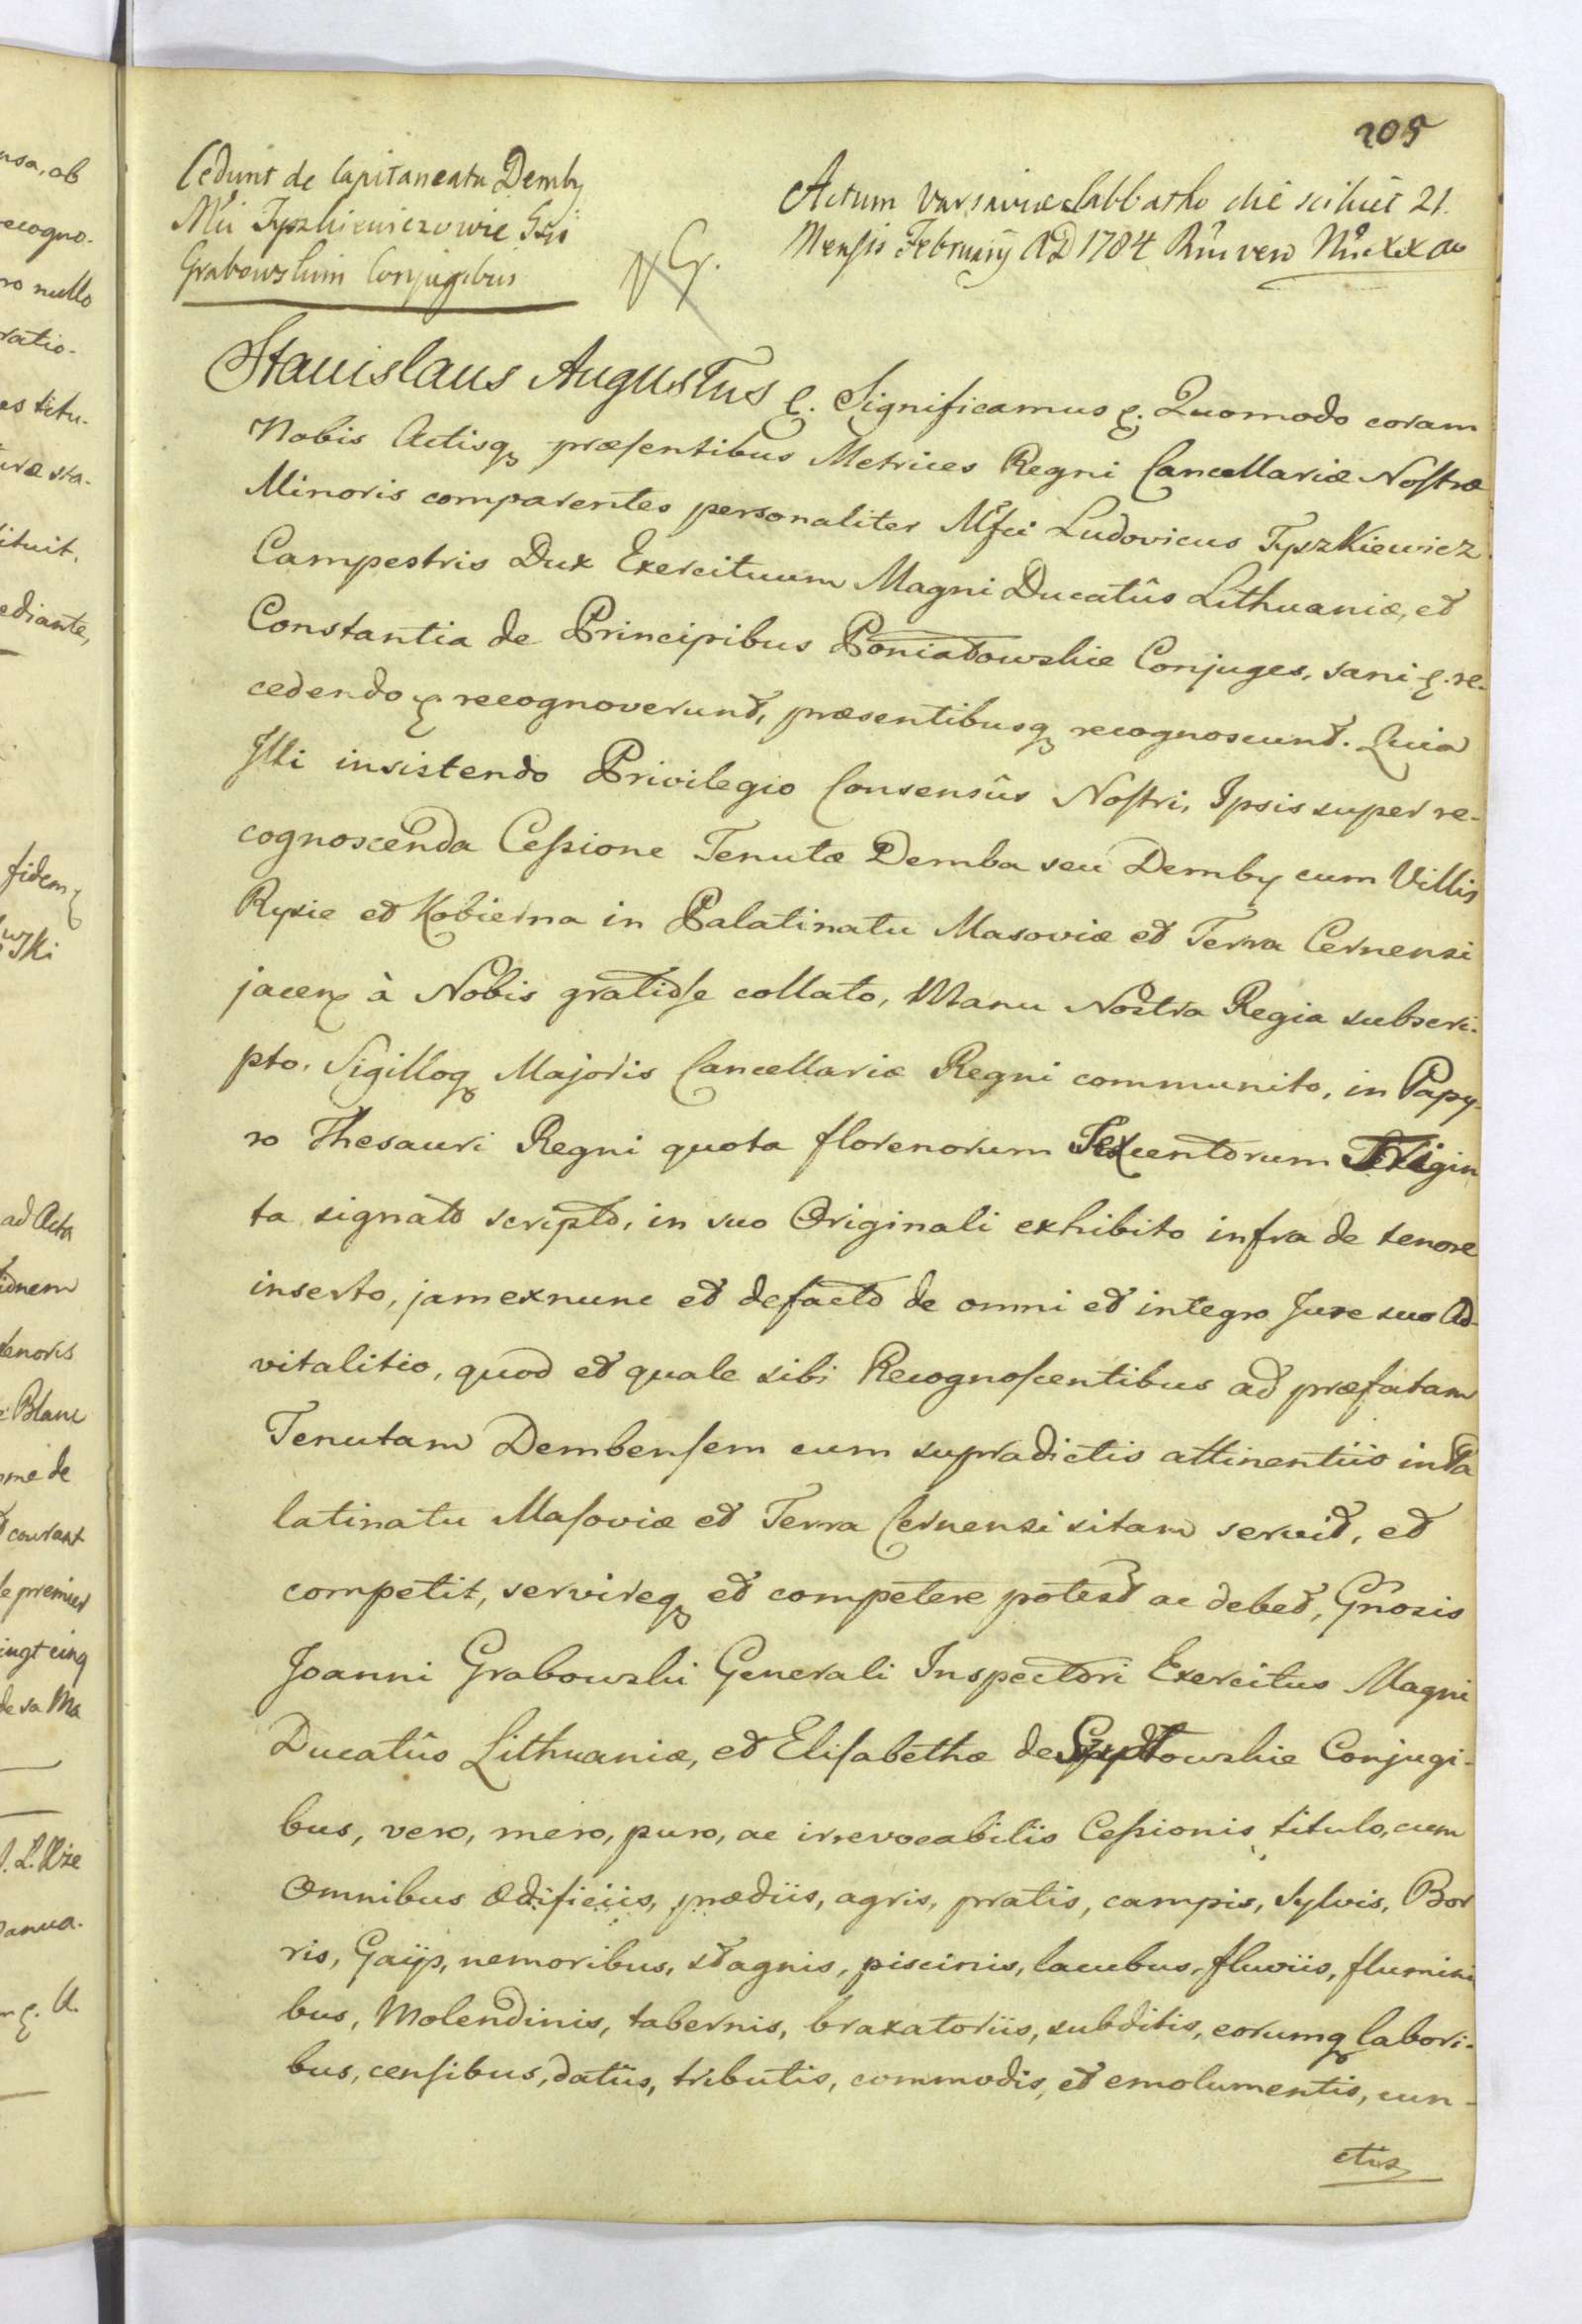 205
Cedunt de Capitaneatu Demby
Mci Tyszkiewiczowie Gsi
Grabowskim Conjugibus
Actum Varsaviæ Sabbatho die scilicet 21.
Mensis Februarij AD 1784 Rni vero Nri XX ao
Stanislaus Augustus &. Significamus &. Quomodo coram
Nobis Actisq præsentibus Metrices Regni Cancellariæ Nostræ
Minoris comparentes personaliter Mfci Ludovicus Tyszkiewicz
Campestris Dux Exercituum Magni Ducatûs Lithuaniæ, et
Constantia de Principibus Poniatowskie Conjuges, sani &. re-
cedendo & recognoverunt, præsentibusq recognoscunt. Quia
Illi insistendo Privilegio Consensûs Nostri, Ipsis super re-
cognoscenda Cessione Tenutæ Demba seu Demby cum Villis
Ryxie et Kobierna in Palatinatu Masoviæ et Terra Cernensi
jacen à Nobis gratiose collato, Manu Nostra Regia subscri-
pto, Sigilloq Majoris Cancellariæ Regni communito, in Papy-
ro Thesauri Regni quota florenorum Sexcentorum Trigin
ta signato scripto, in suo Originali exhibito infra de tenore
inserto, jam exnunc et defacto de omni et integro Jure suo Ad-
vitalitio, quod et quale sibi Recognoscentibus ad præfatam
Tenutam Dembensem cum supradictis attinentiis in Pa
latinatu Masoviæ et Terra Cernensi sitam servit, et
competit, servireq et competere potest ac debet, Gnosis
Joanni Grabowski Generali Inspectori Exercitus Magni
Ducatûs Lithuaniæ, et Elisabethæ de Szydłowskie Conjugi-
bus, vero, mero, puro, ac irrevocabilis Cessionis titulo, cum
Omnibus ædificiis, prædiis, agris, pratis, campis, Sylvis, Bor
ris, Gaijs, nemoribus, stagnis, piscinis, lacubus, fluviis, flumini
bus, Molendinis, tabernis, braxatoriis, subditis, eorumq labori-
bus, censibus, datiis, tributis, commodis, et emolumentis, cun-
ctis